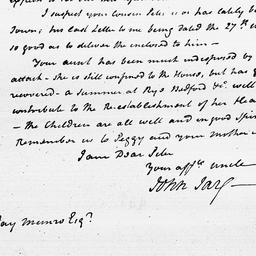 I suspect your Cousin Peter is or has lately be
Town; his last Letter to me being dated the 27th
so good as to deliver the enclosed to him —
Your aunt has been much indisposed by
attack - she is still confined to the House, but has
recovered - a summer at Rye & Bedford &c. will
contribute to the Re-establishment of her Hea
- The Children are all well and in good Spir
Remember us to Peggy and your mother
I am Dear Peter
Your affte uncle
John Jay —
Jay Munro Esqr.